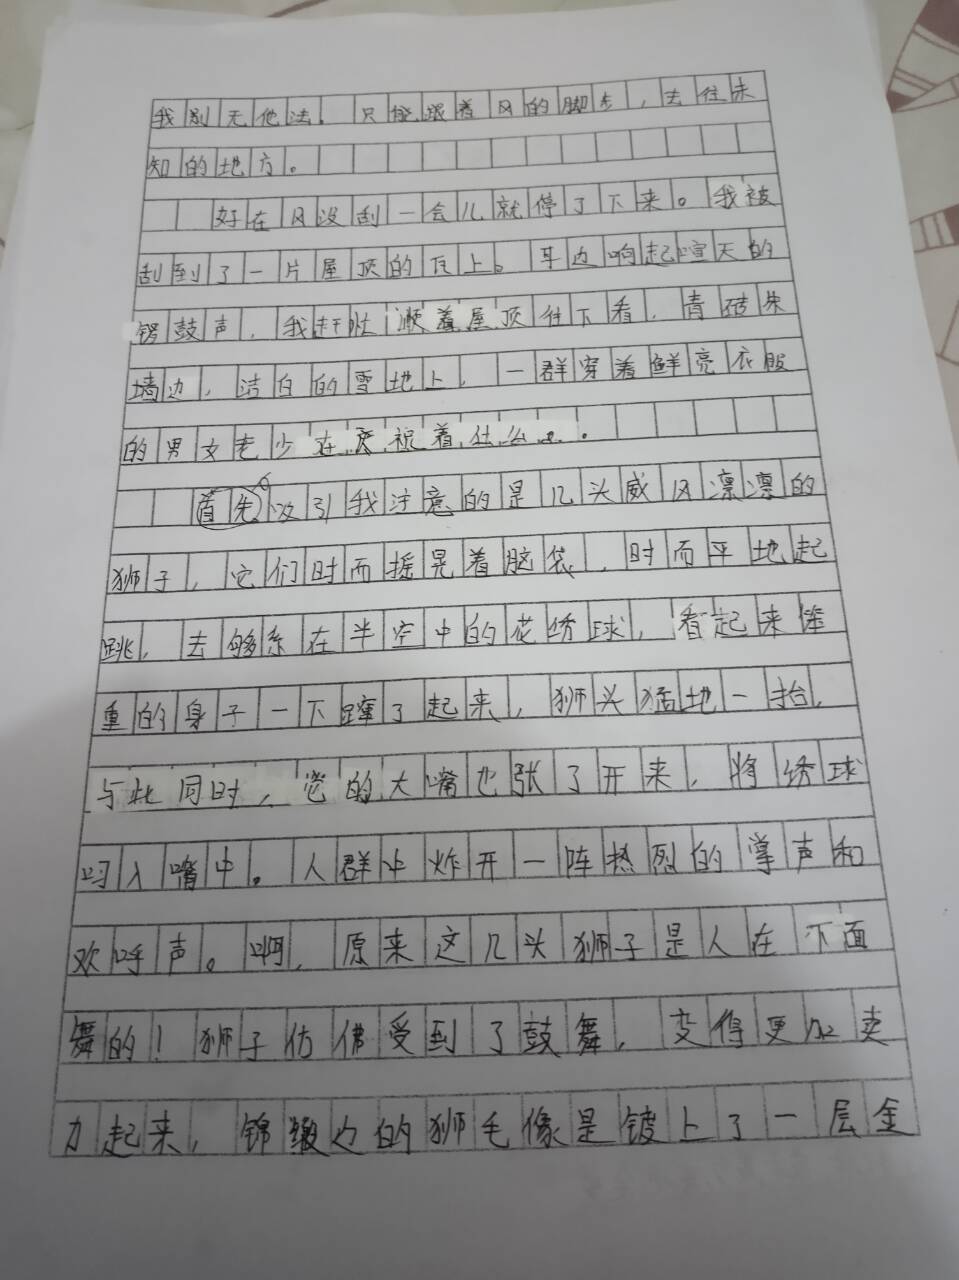 我别无他法。只能跟着风的脚步，去往未
知的地方。
好在风没刮一会儿就停了下来。我被
刮到了一片屋顶的瓦上。耳边响起喧天的
锣鼓声，我赶忙顺着屋顶往下看，青砖朱
墙边，洁白的雪地上，一群穿着鲜亮衣服
的男女老少在庆祝着什么。
首先吸引我注意的是几头威风凛凛的
狮子，它们时而摇晃着脑袋，时而平地起
跳，去够系在半空中的花绣球，看起来笨
重的身子一下蹿了起来，狮头猛地一抬，
与此同时，它的大嘴也张了开来，将绣球
叼入嘴中。人群中炸开一阵热烈的掌声和
欢呼声。啊，原来这几头狮子是人在下面
舞的！狮子仿佛受到了鼓舞，变得更加卖
力起来，锦缎边的狮毛像是镀上了一层金